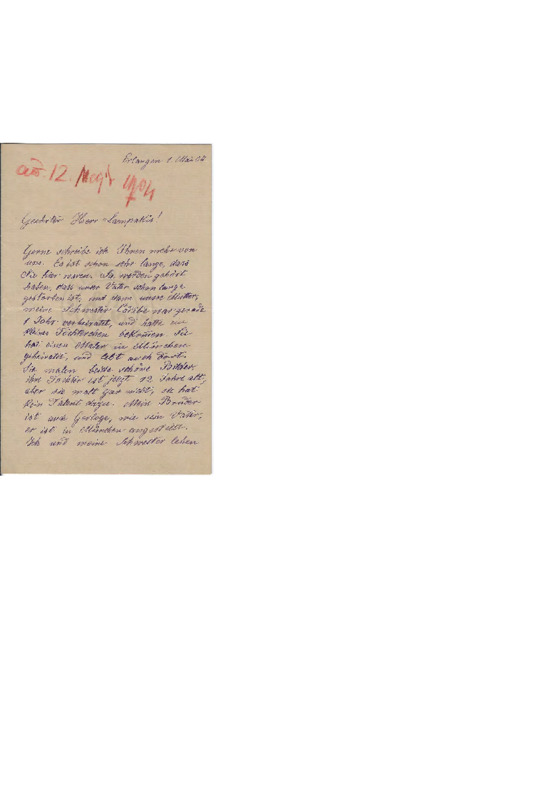 Erlangen 1. Mai 04
12. 1904
Geehrter Herr Lampakis!
Gerne schreibe ich Ihnen mehr von
uns. Es ist schon sehr lange, dass
Sie hier waren. Sie werden gehört
haben, dass unser Vater schon lange
gestorben ist, und dann unsere Mutter,
meine Schwester war gerade
1 Jahr verheiratet, und hatte ein
kleines Töchterchen bekommen. Sie
hat einen Maler in München
geheiratet, und lebt auch dort.
Sie malen beide schöne Bilder.
Ihre Tochter ist jetzt 12 Jahre alt,
aber sie malt gar nicht, sie hat
kein Talent dazu. Mein Bruder
ist auch Geologe, wie sein Vater,
er ist in München angestellt.
Ich und meine Schwester leben